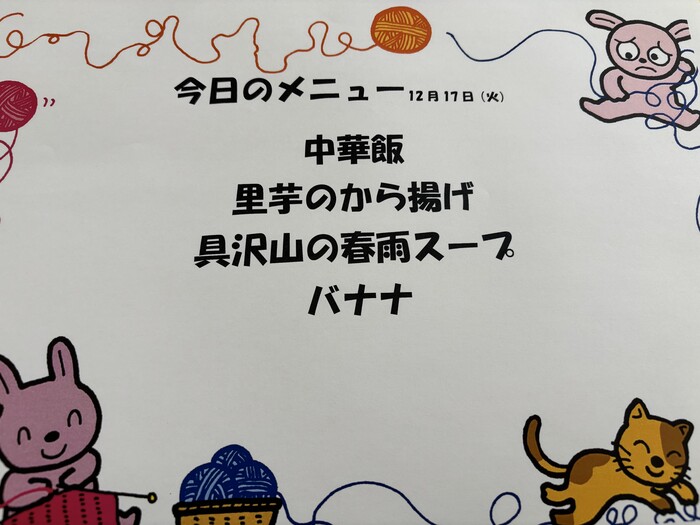 今日のメニュー12月17日（火）
中華飯
里芋のから揚げ
具沢山の春雨スープ
バナナ